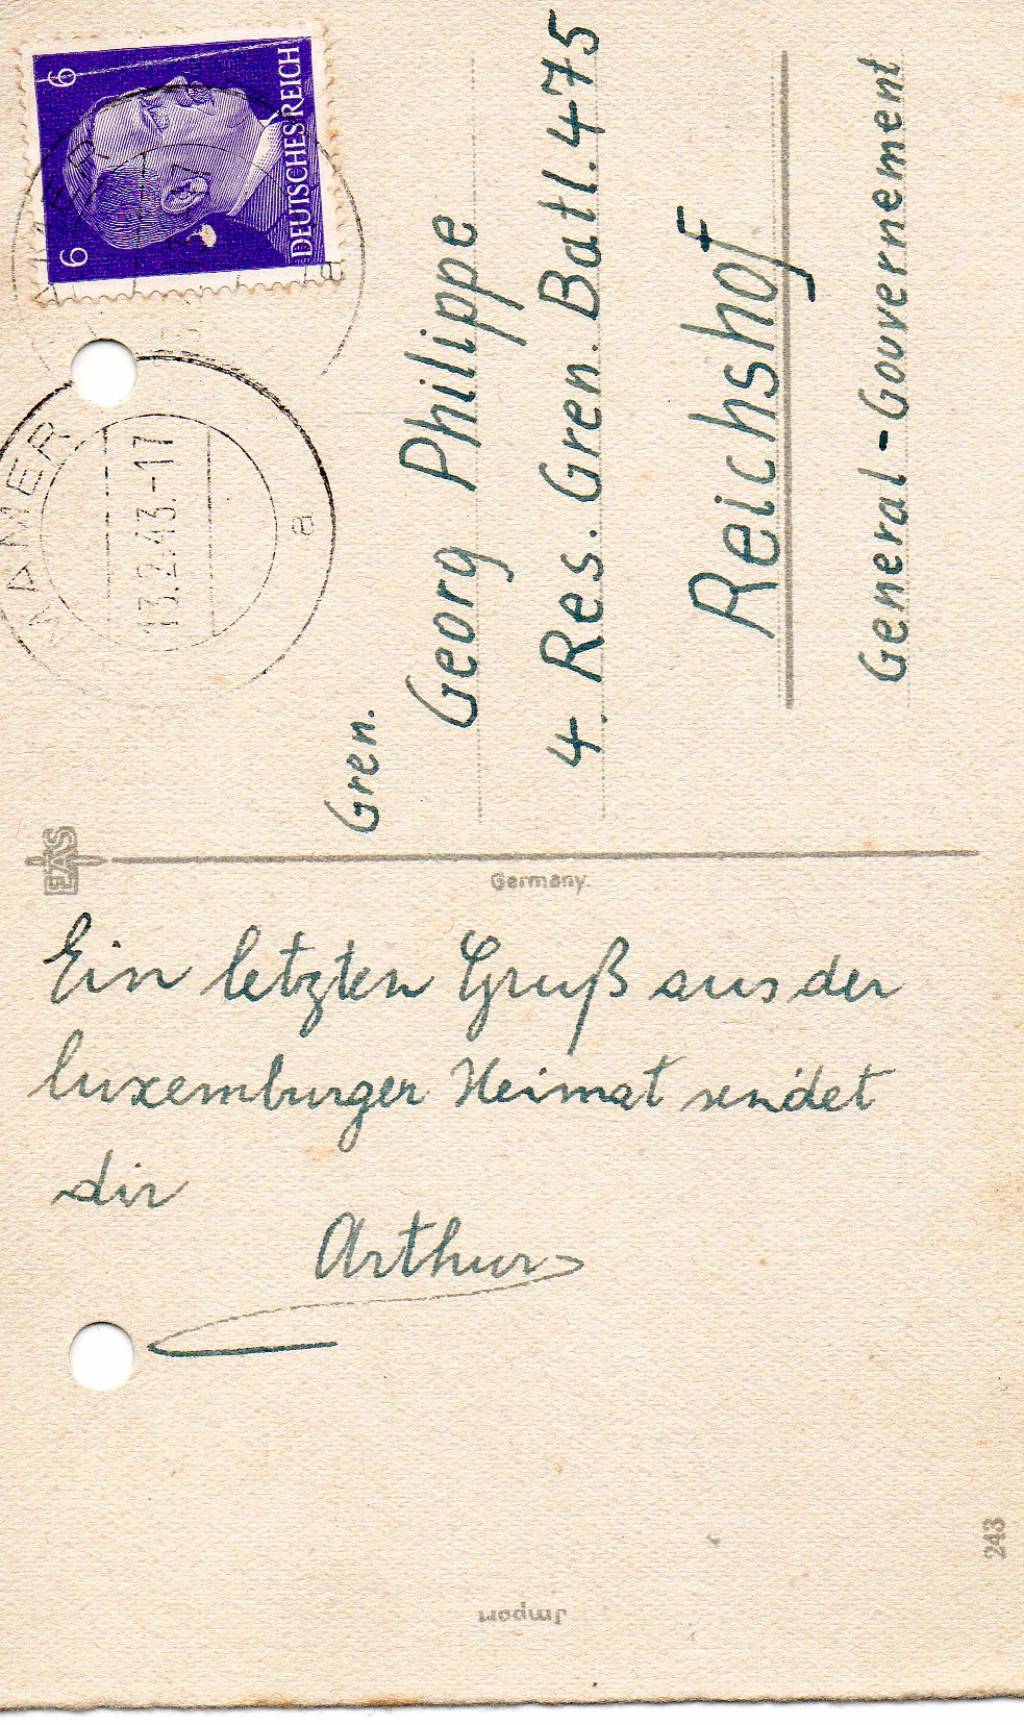 Ein letzten Gruß aus der
luxemburger Heimat sendet
dir
Arthur
Gren.
Georg Philippe
4. Res. Gren. Batl. 475
Reichshof
General-Gouvernement
6 6
DEUTSCHES REICH
MAMER
13.2.43.-17
a
MAMER
a
EAS
Germany.
Jmport
243